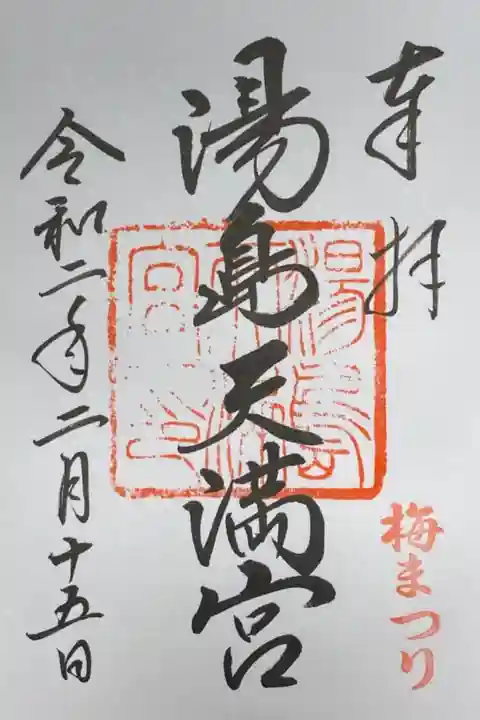 奉拝
梅まつり
湯島天満宮
湯島天満宮之印
令和二年二月十五日